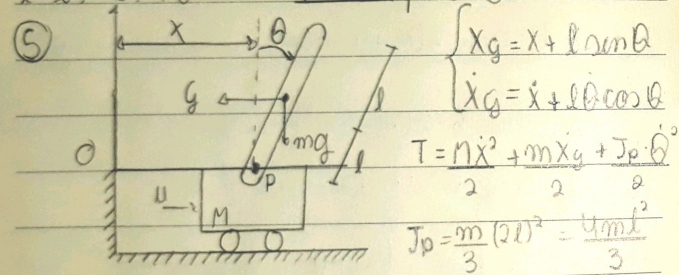 5
X
θ
G
mg
l
l
O
P
U
M
Xg = X + l senθ
Ẋg = Ẋ + lθ̇ cosθ
T = MẊ²/2 + mẊg/2 + Jp·θ̇²/2
Jp = m/3 (2l)² = 4ml²/3